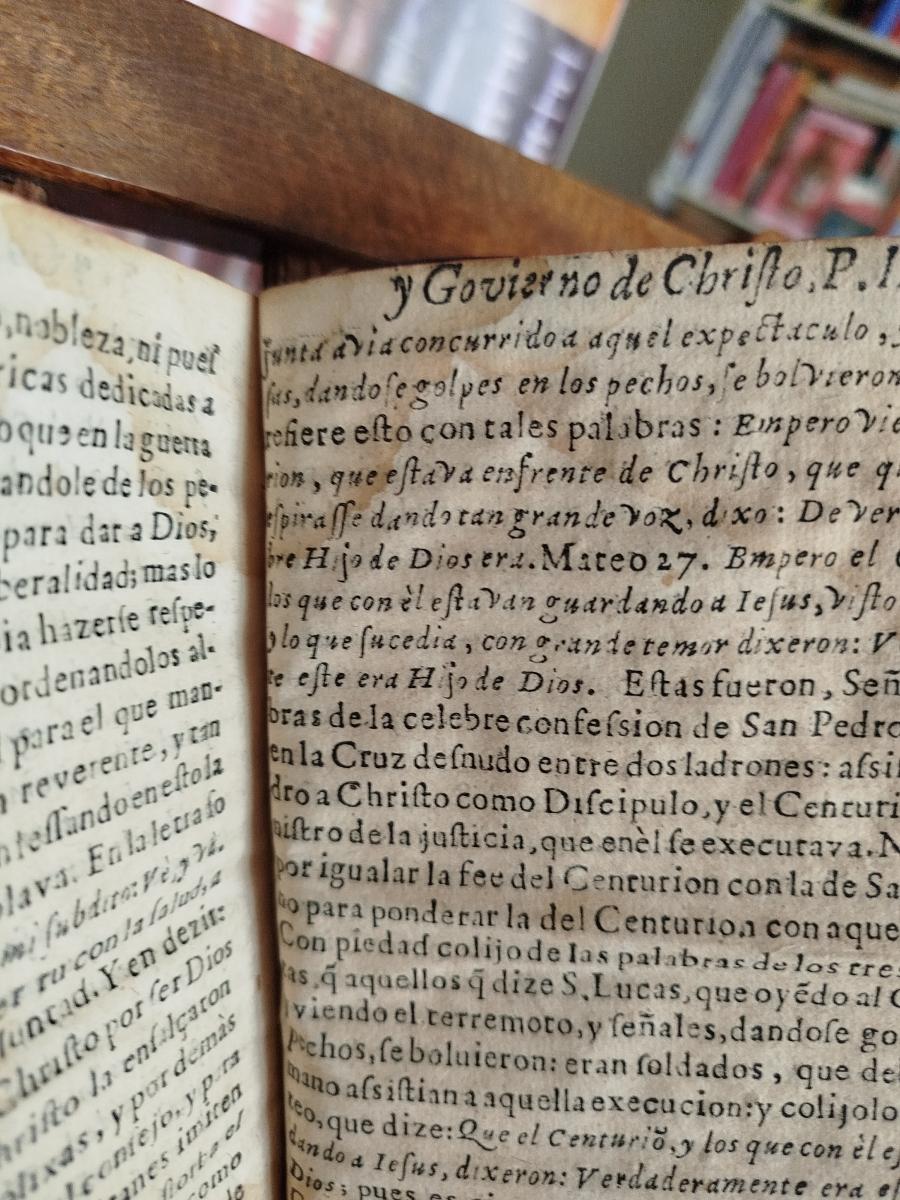 nobleza, ni pueſ
ricas dedicadas a
que en la guerra
andole de los pe-
para dar a Dios,
beralidad; mas lo
ia hazerſe reſpe-
ordenandolos al-
para el que man-
reverente, y tan
nfeſſando en eſto la
lava. En la letra ſo
mi ſubdito: Vè, y Vi.
er tu con la ſalud, a
luntad. Y en dezir:
Chriſto por ſer Dios
hriſto la enſalçaron
lixas, y por demàs
l conſejo, y para
anes imiten
como
y Govierno de Chriſto, P. I
junta avia concurrido a aquel expectaculo,
ſas, dandoſe golpes en los pechos, ſe bolvieron
refiere eſto con tales palabras: Empero Vie
rion, que eſtava enfrente de Chriſto, que
eſpiraſſe dando tan grande voz, dixo: De Ver
bre Hijo de Dios era. Mateo 27. Empero el
los que con èl eſtavan guardando a Ieſus, viſto
y lo que ſucedia, con grande temor dixeron: V
te eſte era Hijo de Dios. Eſtas fueron, Señ
bras de la celebre confeſsion de San Pedro
en la Cruz deſnudo entre dos ladrones: aſsiſ
dro a Chriſto como Diſcipulo, y el Centuri
niſtro de la juſticia, que en èl ſe executava. N
por igualar la fee del Centurion con la de Sa
no para ponderar la del Centurion con aque
Con piedad colijo de las palabras de los tre
tas, q̃ aquellos q̃ dize S. Lucas, que oyẽdo al C
viendo el terremoto, y ſeñales, dandoſe go
pechos, ſe boluieron: eran ſoldados, que de
mano aſsiſtian a aquella execucion: y colijolo
teo, que dize: Que el Centuriõ, y los que con èl eſ
dando a Ieſus, dixeron: Verdaderamente era
Dios; pues